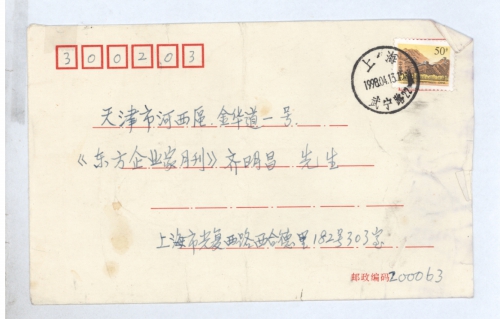 300203
50分
上海
1998.04.13.15
武宁路
天津市河西区金华道一号
《东方企业家月刊》齐明昌 先生
上海市光复西路西合德里182号303室
邮政编码200063